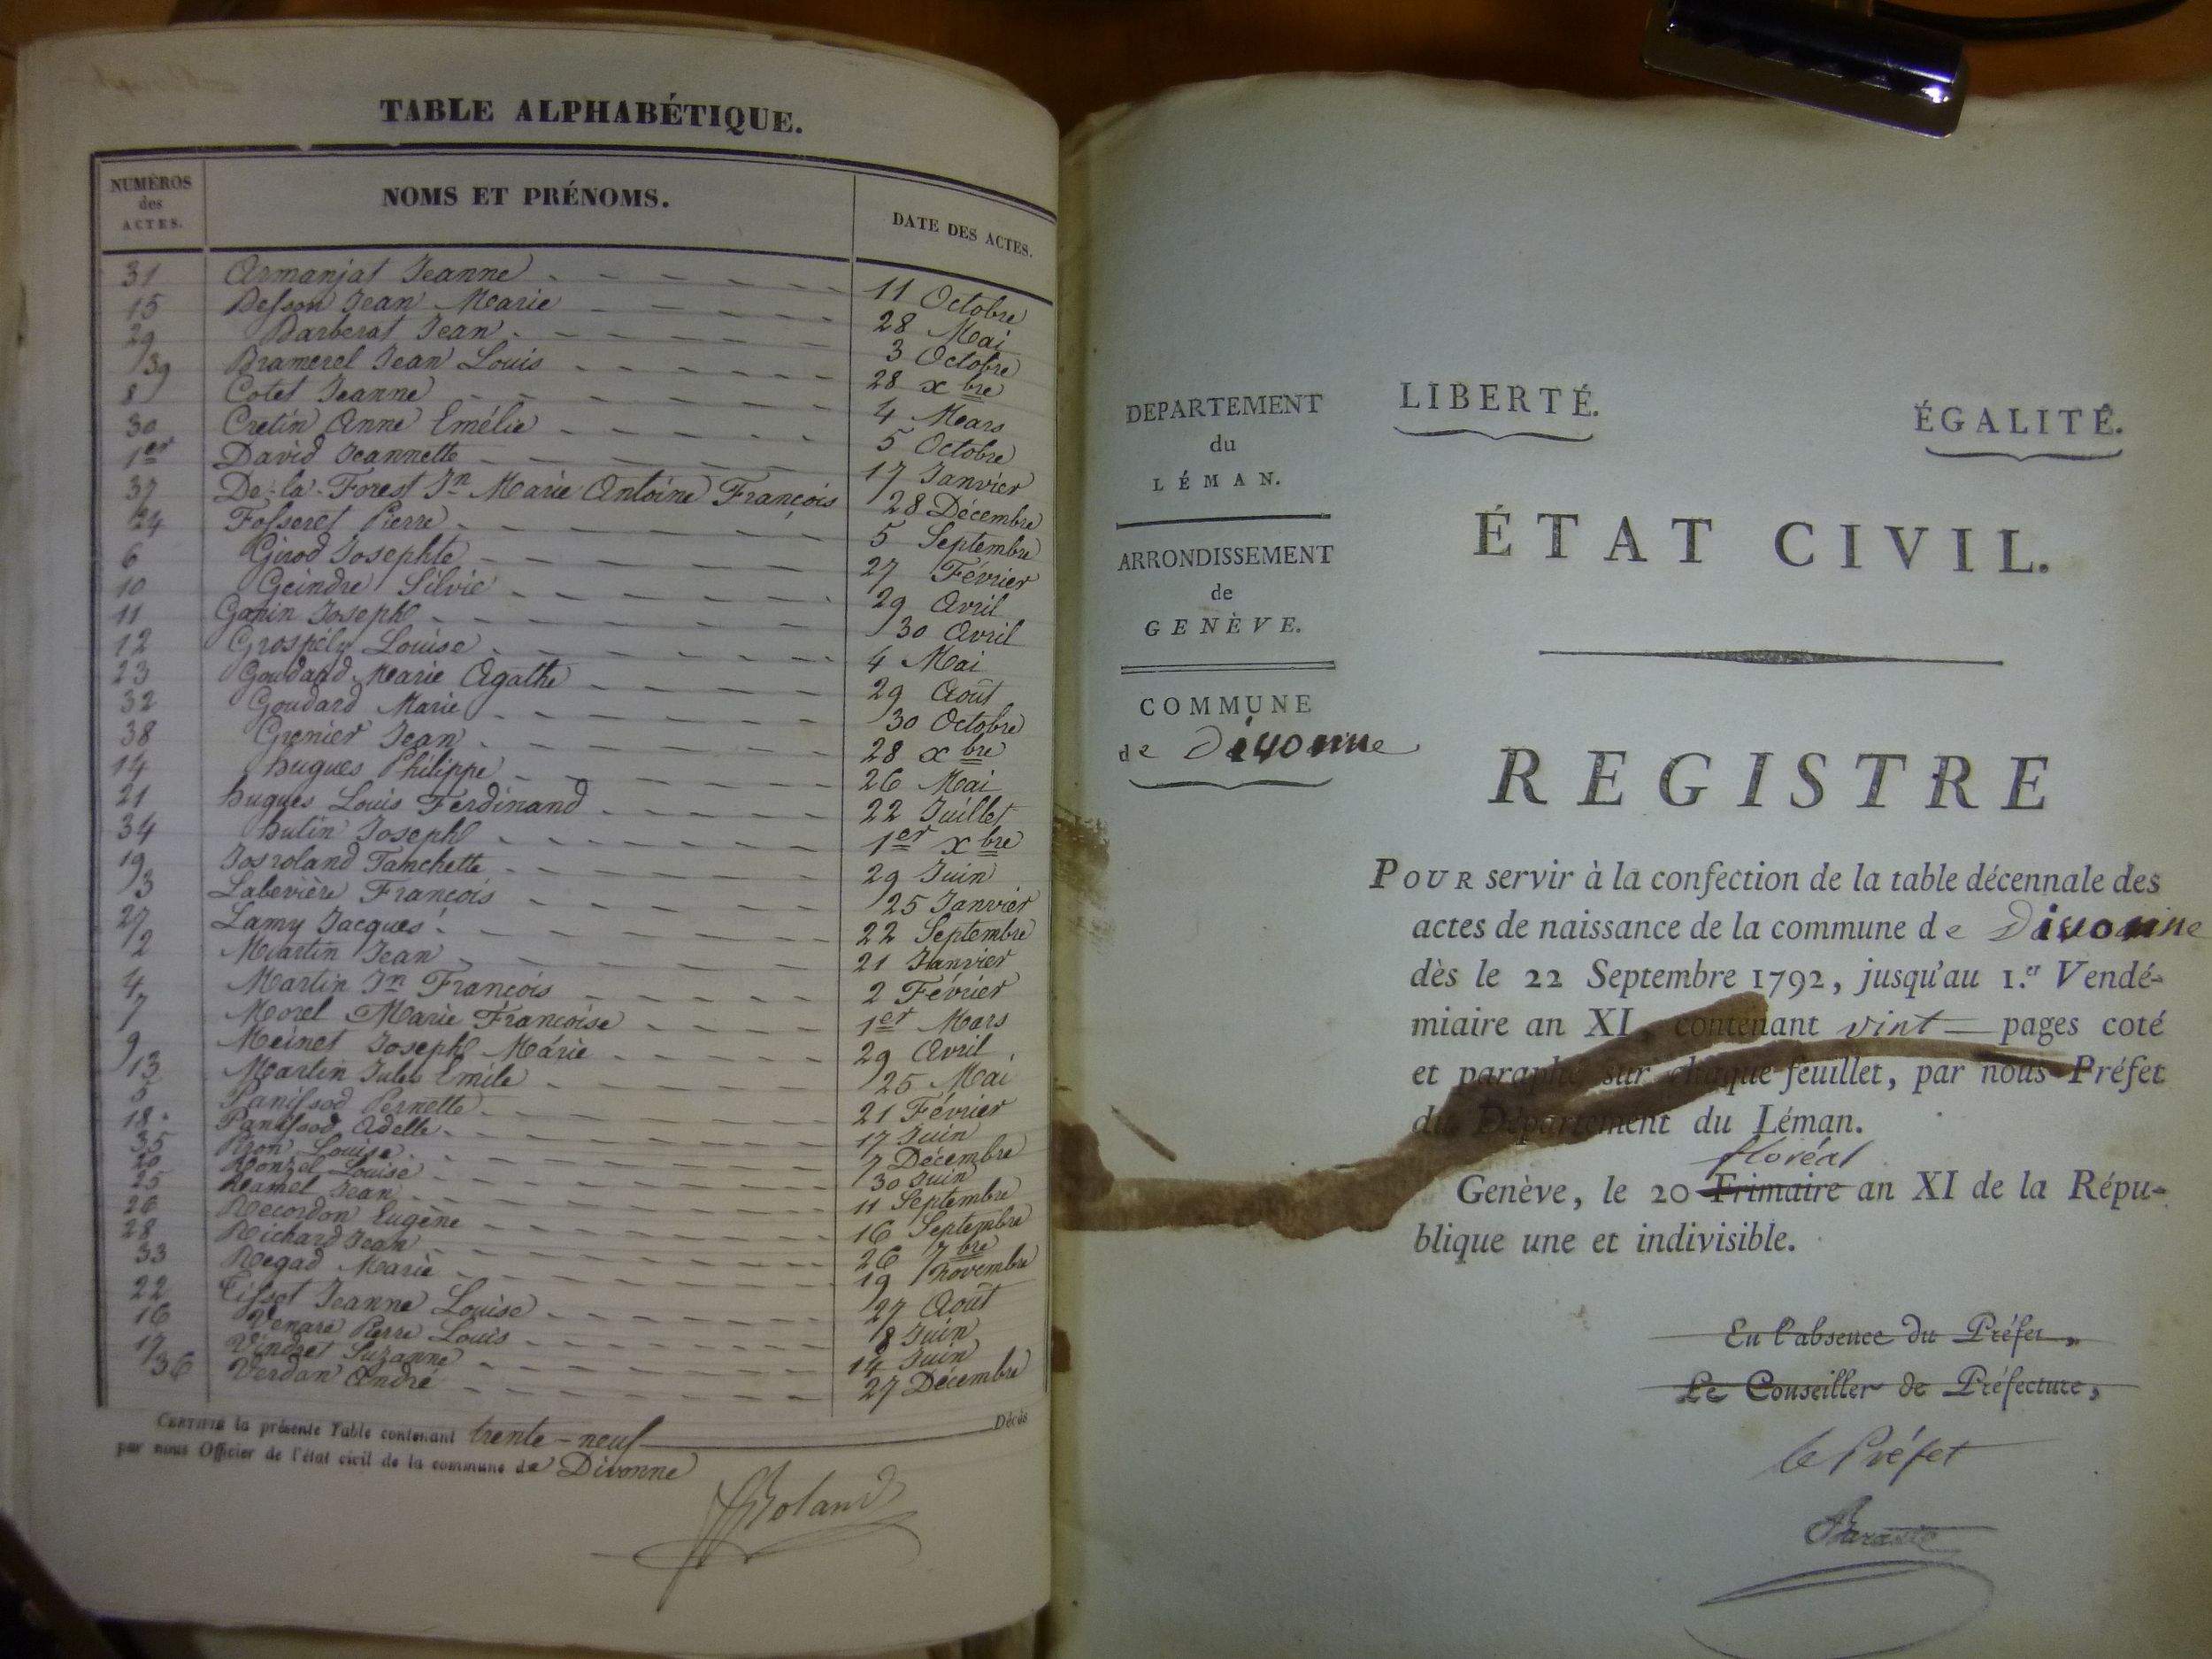 TABLE ALPHABÉTIQUE.
NUMÉROS des ACTES. NOMS ET PRÉNOMS. DATE DES ACTES.
31 Armanjat Jeanne 11 Octobre
15 Besson Jean Marie 28 Mai
29 Barberat Jean 3 Octobre
39 Bramerel Jean Louis 28 xbre
8 Cotet Jeanne 4 Mars
30 Cretin Anne Emélie 5 Octobre
1er David Jeannette 17 Janvier
37 De-la-Forest Jn Marie Antoine François 28 Décembre
24 Fosseret Pierre 5 Septembre
6 Girod Josephte 27 Février
10 Geindre Silvie 29 Avril
11 Gonin Joseph 30 Avril
12 Grospély Louise 4 Mai
23 Goudard Marie Agathe 29 Août
32 Goudard Marie 30 Octobre
38 Grenier Jean 28 xbre
14 hugues Philippe 26 Mai
21 hugues Louis Ferdinand 22 Juillet
34 hutin Joseph 1er xbre
19 Josroland Fanchette 29 Juin
3 Labevière François 25 Janvier
27 Lamy Jacques 22 Septembre
2 Martin Jean 21 Janvier
4 Martin Jn François 2 Février
7 Morel Marie Françoise 1er Mars
9 Meinet Joseph Marie 29 Avril
13 Martin Jules Emile 25 Mai
5 Panissod Pernette 21 Février
18 Panissod Adelle 17 Juin
35 Pron Louise 7 Décembre
20 Ronzel Louise 30 Juin
25 Ramel Jean 11 Septembre
26 Recordon Eugène 16 Septembre
28 Richard Jean 26 7bre
33 Regad Marie 19 Novembre
22 Tisset Jeanne Louise 27 Août
16 Venare Pierre Louis 8 Juin
17 Vindret Suzanne 14 Juin
36 Verdan André 27 Décembre
CERTIFIÉ la présente Table contenant trente-neuf Décès
par nous Officier de l'état civil de la commune de Divonne
Roland
DEPARTEMENT
du
LÉMAN.
ARRONDISSEMENT
de
GENÈVE.
COMMUNE
de Divonne
LIBERTÉ. ÉGALITÉ.
ÉTAT CIVIL.
REGISTRE
POUR servir à la confection de la table décennale des
actes de naissance de la commune de Divonne
dès le 22 Septembre 1792, jusqu'au 1.er Vendé-
miaire an XI, contenant vint pages coté
et paraphé sur chaque feuillet, par nous Préfet
du Département du Léman.
floréal
Genève, le 20 Frimaire an XI de la Répu-
blique une et indivisible.
En l'absence du Préfet,
Le Conseiller de Préfecture,
le Préfet